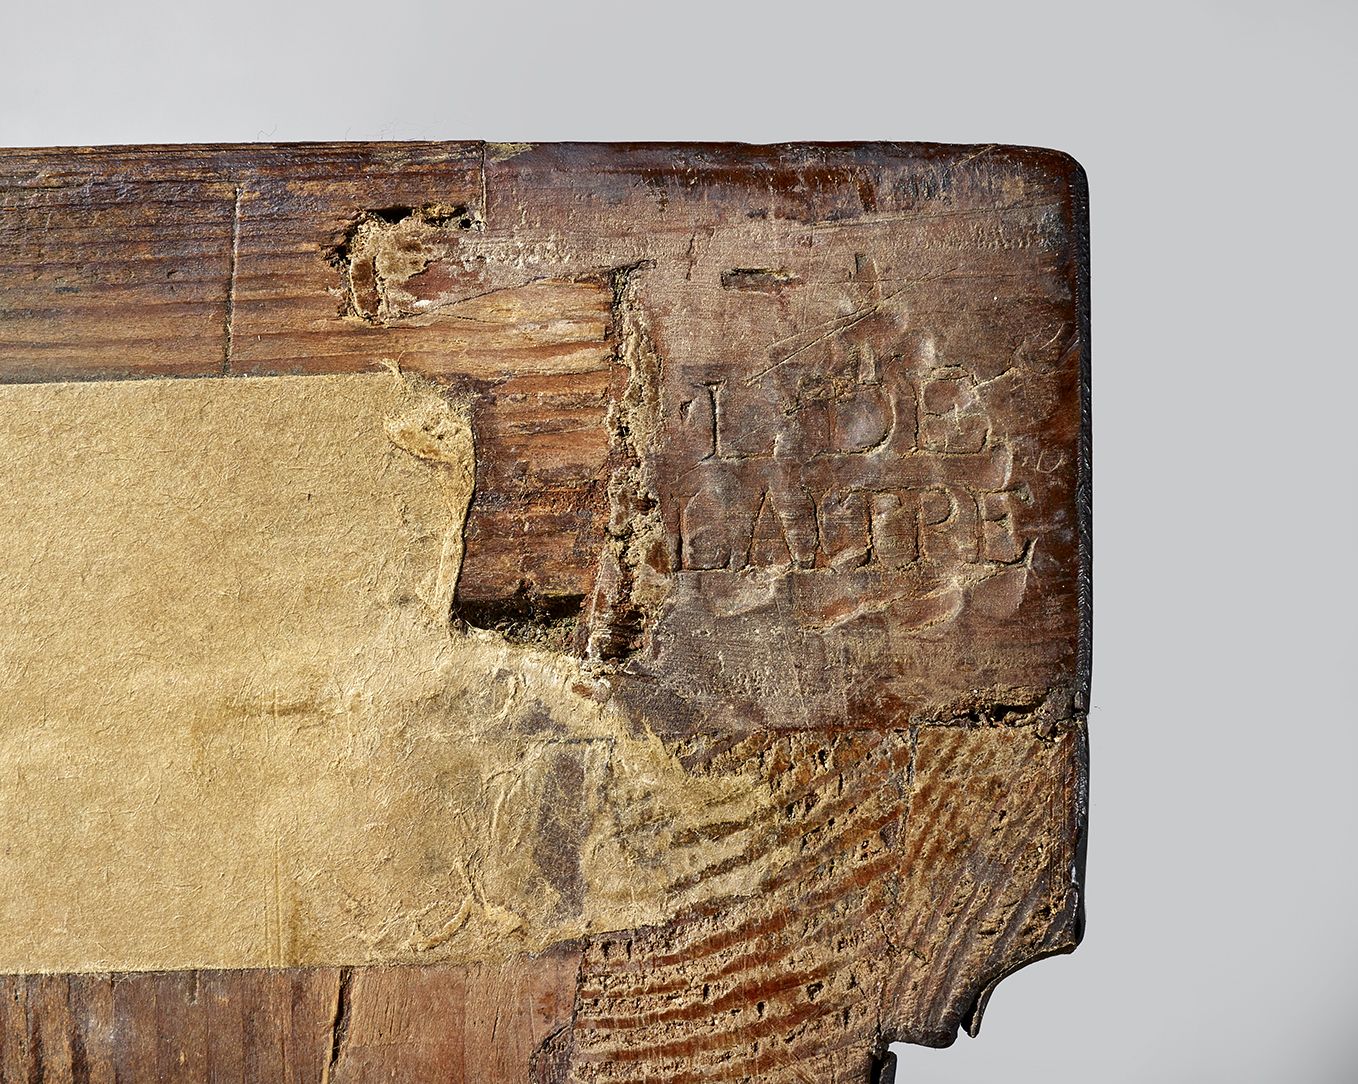 I · DE
LAITRE